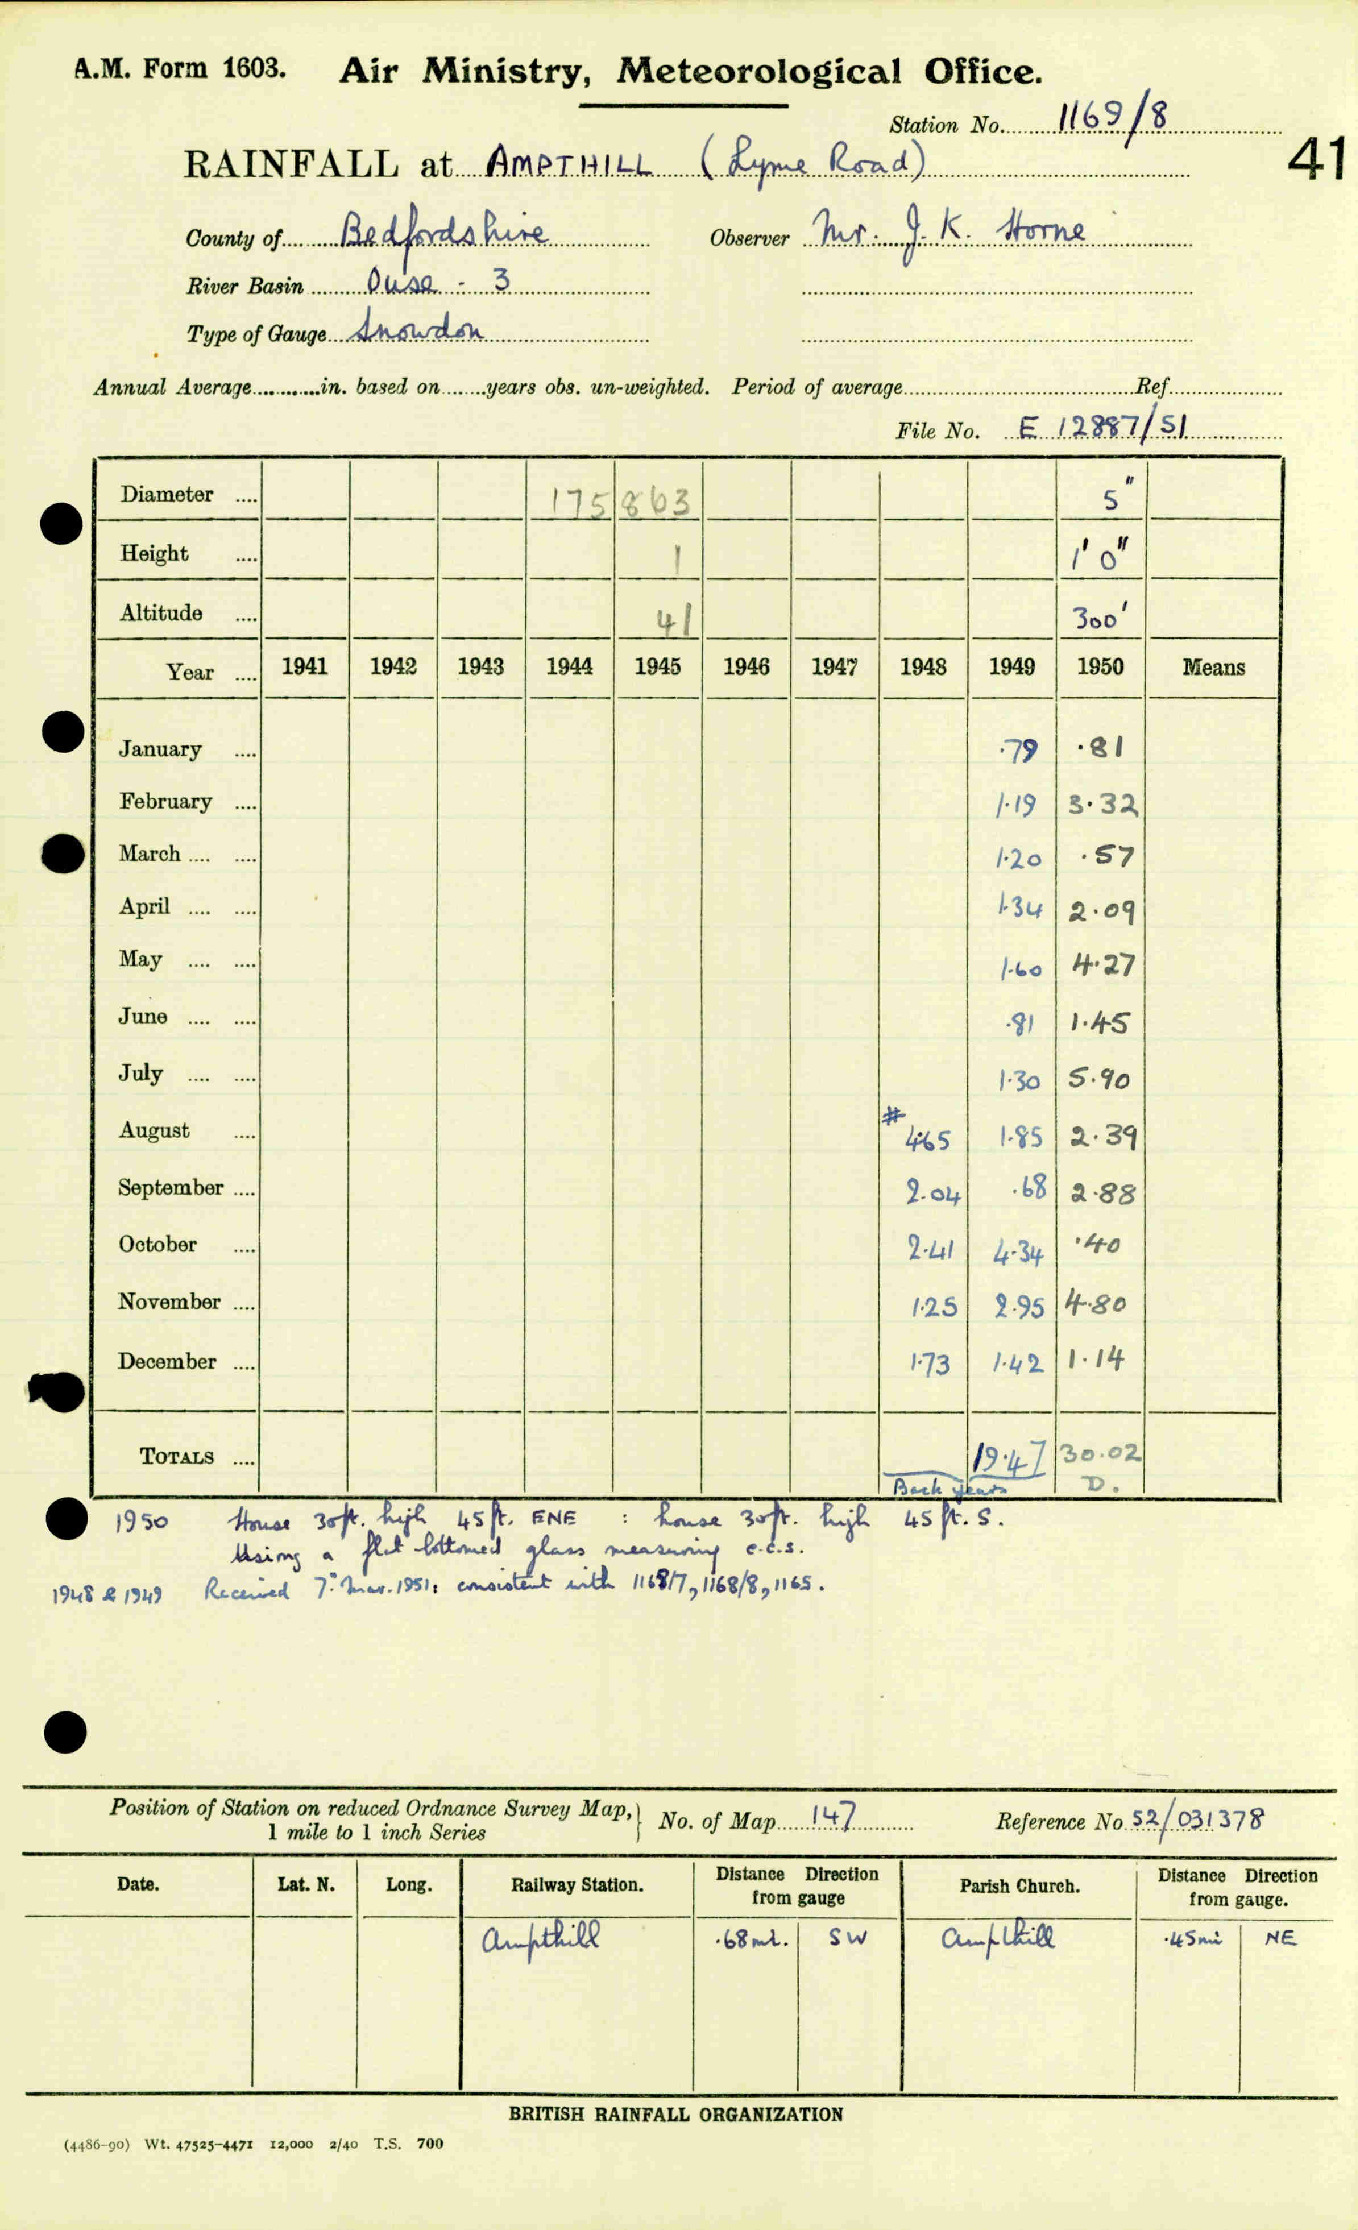 A.M. Form 1603. Air Ministry, Meteorological Office.
Station No. 1169/8
41
RAINFALL at AMPTHILL (Lyme Road)
County of Bedfordshire Observer Mr. J. K. Horne
River Basin Ouse - 3
Type of Gauge Snowdon
Annual Average............in. based on.......years obs. un-weighted. Period of average.......... Ref..........
File No. E 12887/51
Diameter .... 175863 5"
Height .... 1 1' 0"
Altitude .... 41 300'
Year .... 1941 1942 1943 1944 1945 1946 1947 1948 1949 1950 Means
January .... .79 .81
February .... 1.19 3.32
March .... .... 1.20 .57
April .... .... 1.34 2.09
May .... .... 1.60 4.27
June .... .... .81 1.45
July .... .... 1.30 5.90
August .... # 4.65 1.85 2.39
September .... 2.04 .68 2.88
October .... 2.41 4.34 .40
November .... 1.25 2.95 4.80
December .... 1.73 1.42 1.14
TOTALS .... 19.47 30.02
Back years D.
1950 House 30ft. high 45ft. ENE : house 30ft. high 45ft. S.
Using a flat bottomed glass measuring c.c.s.
1948 & 1949 Received 7th Mar. 1951: consistent with 1168/7, 1168/8, 1165.
Position of Station on reduced Ordnance Survey Map, } No. of Map 147 Reference No 52/031378
1 mile to 1 inch Series
Date. Lat. N. Long. Railway Station. Distance Direction from gauge Parish Church. Distance Direction from gauge.
Ampthill .68 mi. SW Ampthill .45 mi NE
BRITISH RAINFALL ORGANIZATION
(4486-90) Wt. 47525-4471 12,000 2/40 T.S. 700